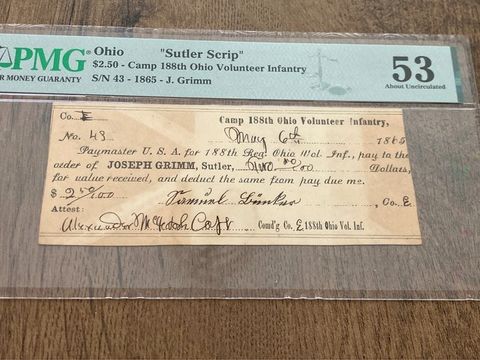 PMG® Ohio "Sutler Scrip" 53
$2.50 - Camp 188th Ohio Volunteer Infantry
R MONEY GUARANTY S/N 43 - 1865 - J. Grimm About Uncirculated
Co. E Camp 188th Ohio Volunteer Infantry,
No. 43 May 6th 1865
Paymaster U. S. A. for 188th Reg. Ohio Vol. Inf., pay to the
order of JOSEPH GRIMM, Sutler, Two 50/100 Dollars,
for value received, and deduct the same from pay due me.
$ 2 50/100 Samuel , Co. E
Attest:
Alexander Capt Comd'g Co. E 188th Ohio Vol. Inf.